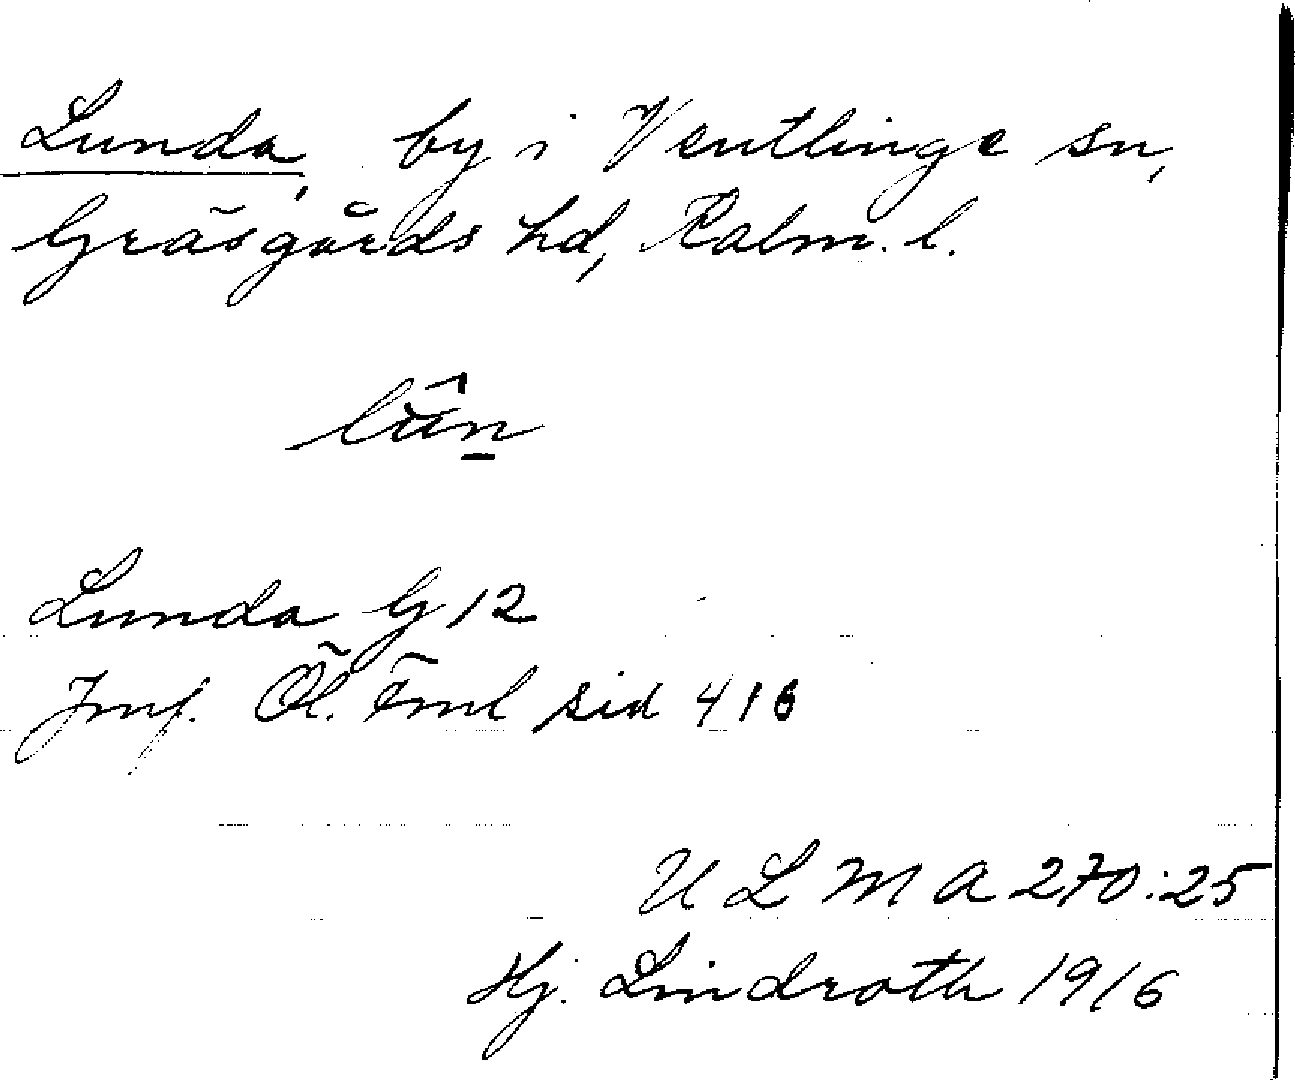 Lunda, by i Ventlinge sn,
Gräsgårds hd, Kalm. l.
lûn̲
Lunda G 12
Jmf. Öl. Fml sid 416
U L M A 270:25
Hj. Lindroth 1916